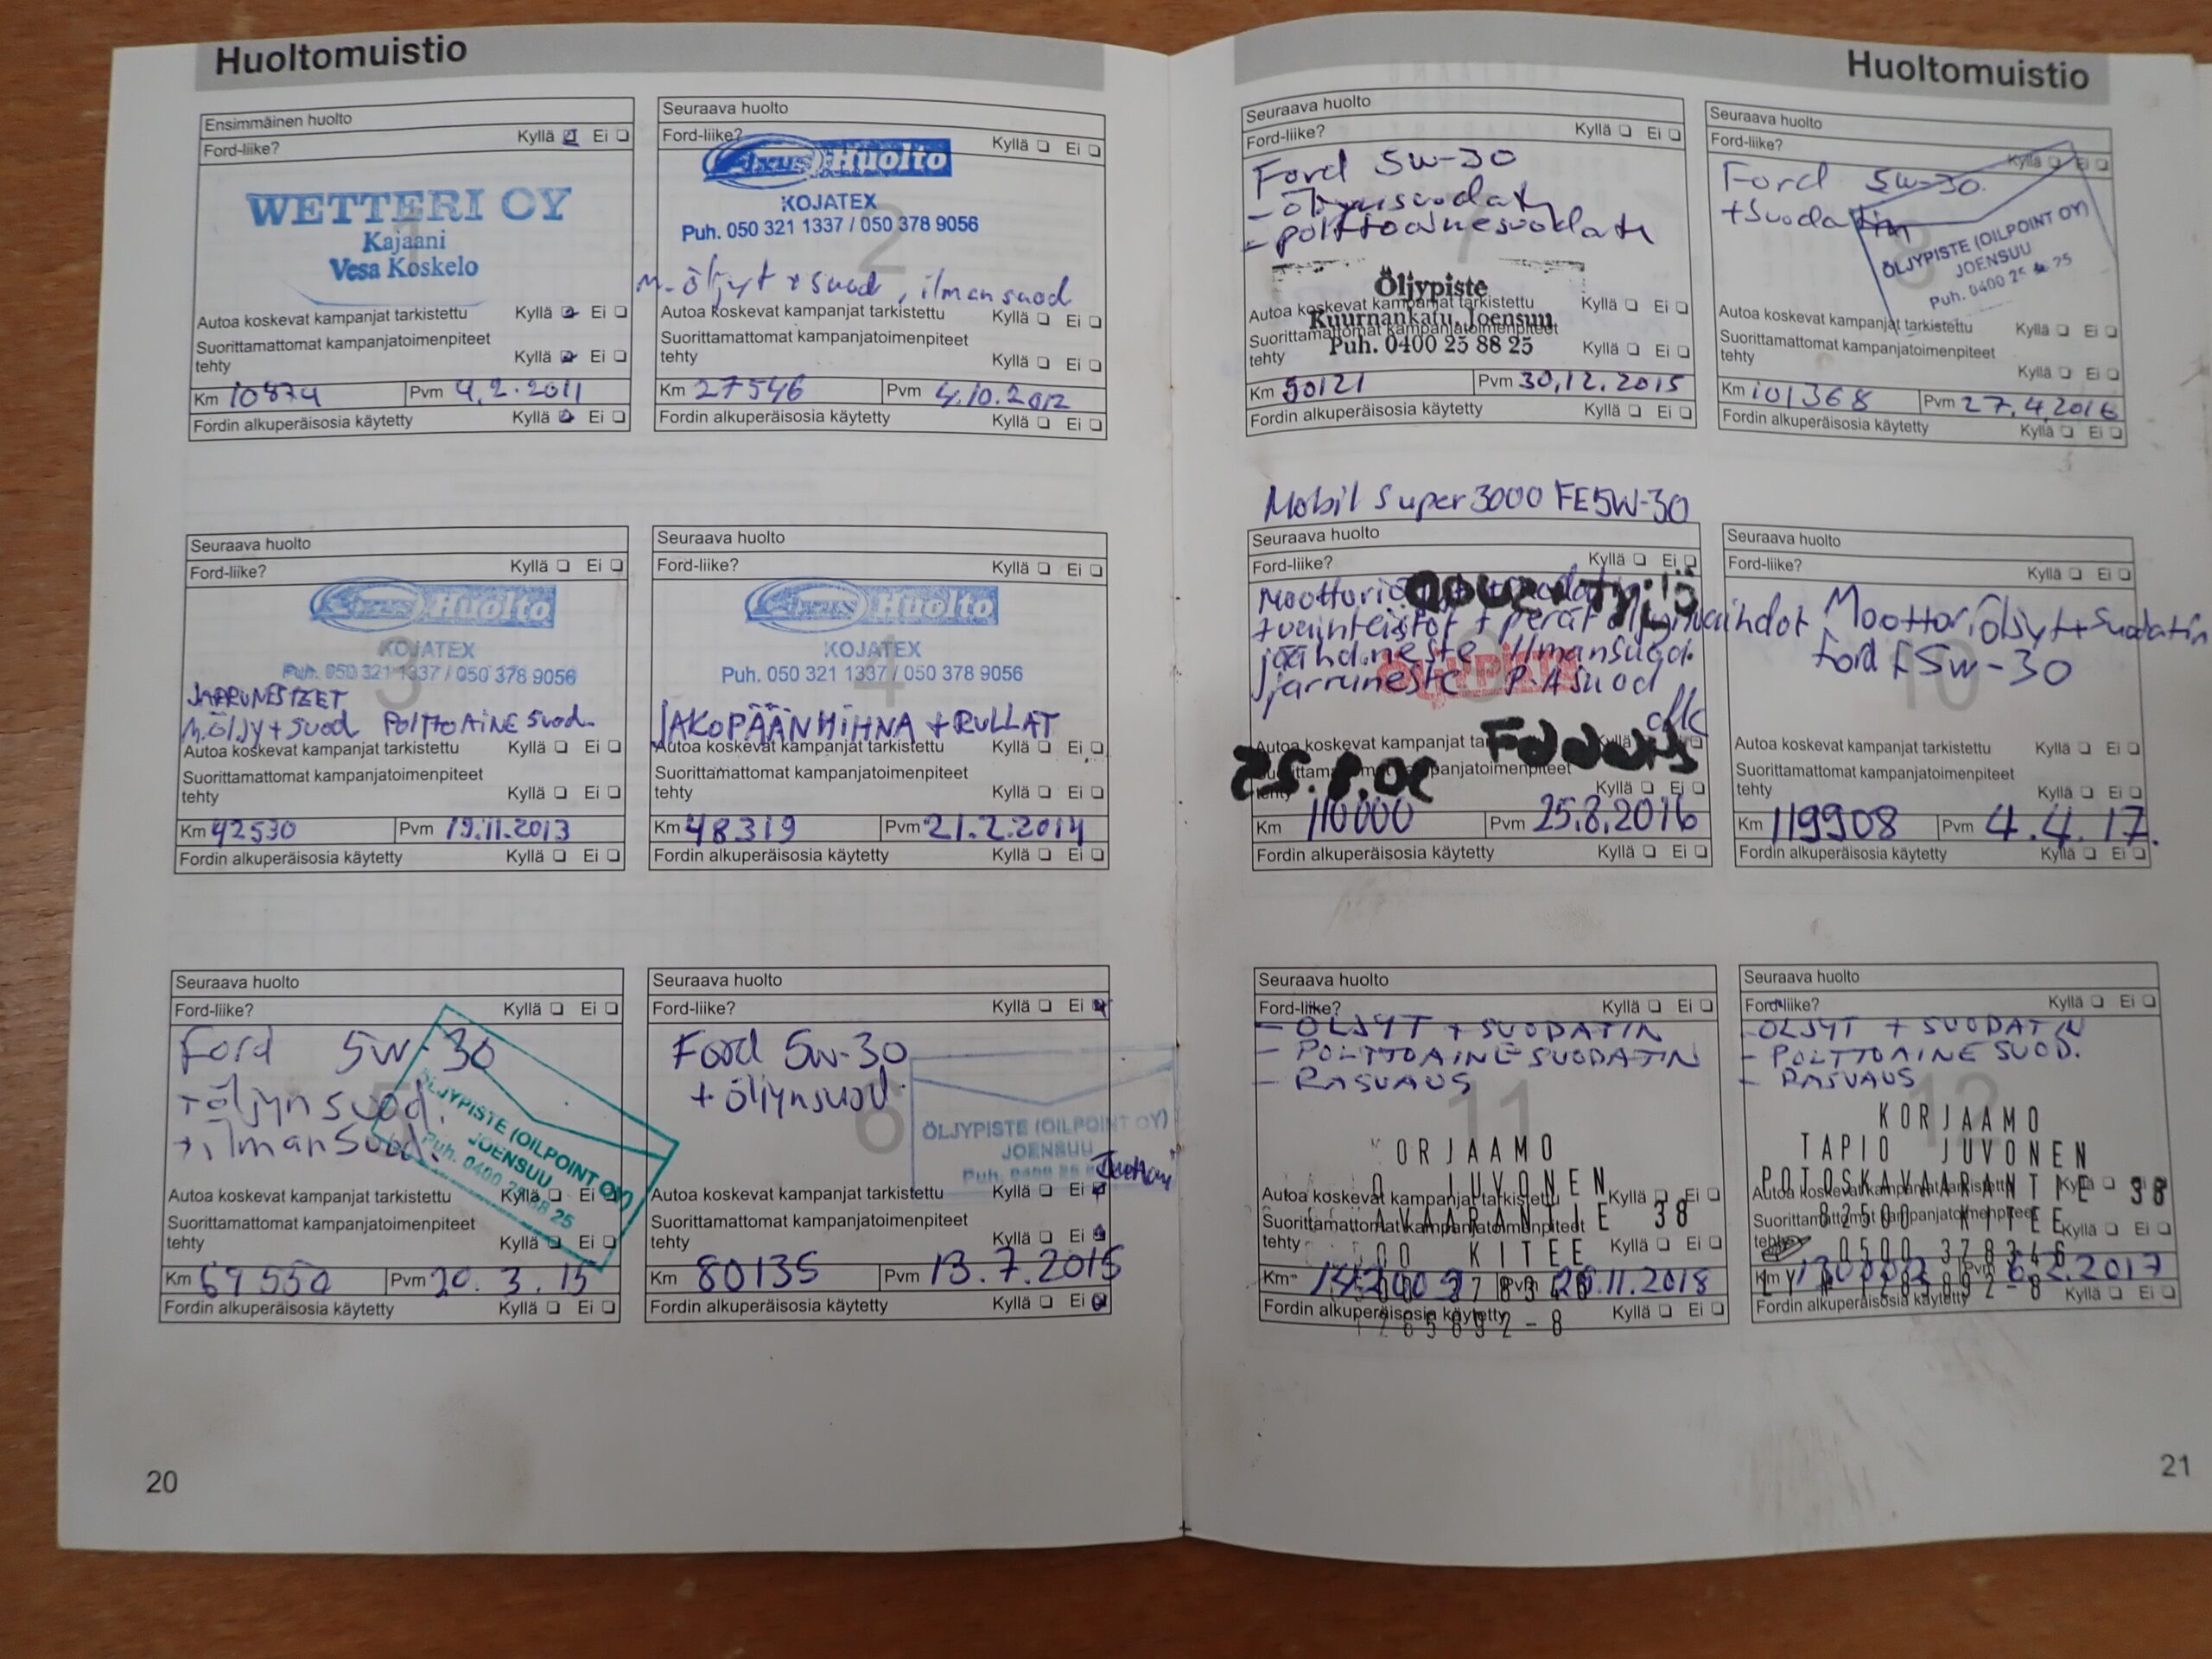 Huoltomuistio
Ensimmäinen huolto
Ford-liike? Kyllä Ei
WETTERI OY
1
Kajaani
Vesa Koskelo
Autoa koskevat kampanjat tarkistettu Kyllä Ei
Suorittamattomat kampanjatoimenpiteet
tehty Kyllä Ei
Km 10874 Pvm 4.2.2011
Fordin alkuperäisosia käytetty Kyllä Ei
Seuraava huolto
Ford-liike? Kyllä Ei
Huolto
KOJATEX
2
Puh. 050 321 1337 / 050 378 9056
M-öljyt + suod, ilmansuod
Autoa koskevat kampanjat tarkistettu Kyllä Ei
Suorittamattomat kampanjatoimenpiteet
tehty Kyllä Ei
Km 27546 Pvm 4.10.2012
Fordin alkuperäisosia käytetty Kyllä Ei
Seuraava huolto
Ford-liike? Kyllä Ei
Huolto
KOJATEX
3
Puh. 050 321 1337 / 050 378 9056
JARRUNESTEET
M.ÖLJY + SUOD POLTTOAINE SUOD.
Autoa koskevat kampanjat tarkistettu Kyllä Ei
Suorittamattomat kampanjatoimenpiteet
tehty Kyllä Ei
Km 42530 Pvm 19.11.2013
Fordin alkuperäisosia käytetty Kyllä Ei
Seuraava huolto
Ford-liike? Kyllä Ei
Huolto
KOJATEX
4
Puh. 050 321 1337 / 050 378 9056
JAKOPÄÄN HIHNA + RULLAT
Autoa koskevat kampanjat tarkistettu Kyllä Ei
Suorittamattomat kampanjatoimenpiteet
tehty Kyllä Ei
Km 48319 Pvm 21.2.2014
Fordin alkuperäisosia käytetty Kyllä Ei
Seuraava huolto
Ford-liike? Kyllä Ei
Ford 5w-30
+öljynsuod.
+ilmansuod.
5
ÖLJYPISTE (OILPOINT OY)
JOENSUU
Puh. 0400 25 88 25
Autoa koskevat kampanjat tarkistettu Kyllä Ei
Suorittamattomat kampanjatoimenpiteet
tehty Kyllä Ei
Km 69550 Pvm 20.3.15
Fordin alkuperäisosia käytetty Kyllä Ei
Seuraava huolto
Ford-liike? Kyllä Ei
Ford 5w-30
+ öljynsuod.
6
ÖLJYPISTE (OILPOINT OY)
JOENSUU
Puh. 0400 25
Autoa koskevat kampanjat tarkistettu Kyllä Ei
Suorittamattomat kampanjatoimenpiteet
tehty Kyllä Ei
Km 80135 Pvm 13.7.2015
Fordin alkuperäisosia käytetty Kyllä Ei
20
Huoltomuistio
Seuraava huolto
Ford-liike? Kyllä Ei
Ford 5w-30
- öljynsuodatin
- polttoainesuodatin
7
Öljypiste
Kuurnankatu, Joensuu
Puh. 0400 25 88 25
Autoa koskevat kampanjat tarkistettu Kyllä Ei
Suorittamattomat kampanjatoimenpiteet
tehty Kyllä Ei
Km 90121 Pvm 30.12.2015
Fordin alkuperäisosia käytetty Kyllä Ei
Seuraava huolto
Ford-liike? Kyllä Ei
Ford 5w-30
+suodatin
8
ÖLJYPISTE (OILPOINT OY)
JOENSUU
Puh. 0400 25 25
Autoa koskevat kampanjat tarkistettu Kyllä Ei
Suorittamattomat kampanjatoimenpiteet
tehty Kyllä Ei
Km 101368 Pvm 27.4.2016
Fordin alkuperäisosia käytetty Kyllä Ei
Mobil Super 3000 FE 5W-30
Seuraava huolto
Ford-liike? Kyllä Ei
+ perät
jäähd.neste Ilmansuod.
jarruneste P.Asuod
ÖLJYPISTE
Autoa koskevat kampanjat Kyllä
Suorittamattomat kampanjatoimenpiteet
tehty Kyllä Ei
Km 110000 Pvm 25.8.2016
Fordin alkuperäisosia käytetty Kyllä Ei
Seuraava huolto
Ford-liike? Kyllä Ei
Moottoriöljyt + Suodatin
Ford F 5w-30
10
Autoa koskevat kampanjat tarkistettu Kyllä Ei
Suorittamattomat kampanjatoimenpiteet
tehty Kyllä Ei
Km 119908 Pvm 4.4.17.
Fordin alkuperäisosia käytetty Kyllä Ei
Seuraava huolto
Ford-liike? Kyllä Ei
- ÖLJYT + SUODATIN
- POLTTOAINESUODATIN
- RASVAUS
11
ORJAAMO
JUVONEN
AVAARANTIE 38
00 KITEE
Autoa koskevat kampanjat tarkistettu Kyllä Ei
Suorittamattomat kampanjatoimenpiteet
tehty Kyllä Ei
Km Pvm .11.2018
Fordin alkuperäisosia käytetty Kyllä Ei
Seuraava huolto
Ford-liike? Kyllä Ei
-ÖLJYT + SUODATIN
- POLTTOAINE SUOD.
- RASVAUS
12
KORJAAMO
TAPIO JUVONEN
POTOSKAVAARANTIE 38
82500 KITEE
0500 378346
Autoa koskevat kampanjat tarkistettu Kyllä Ei
Suorittamattomat kampanjatoimenpiteet
tehty Kyllä Ei
Km Pvm .2017
Fordin alkuperäisosia käytetty Kyllä Ei
21